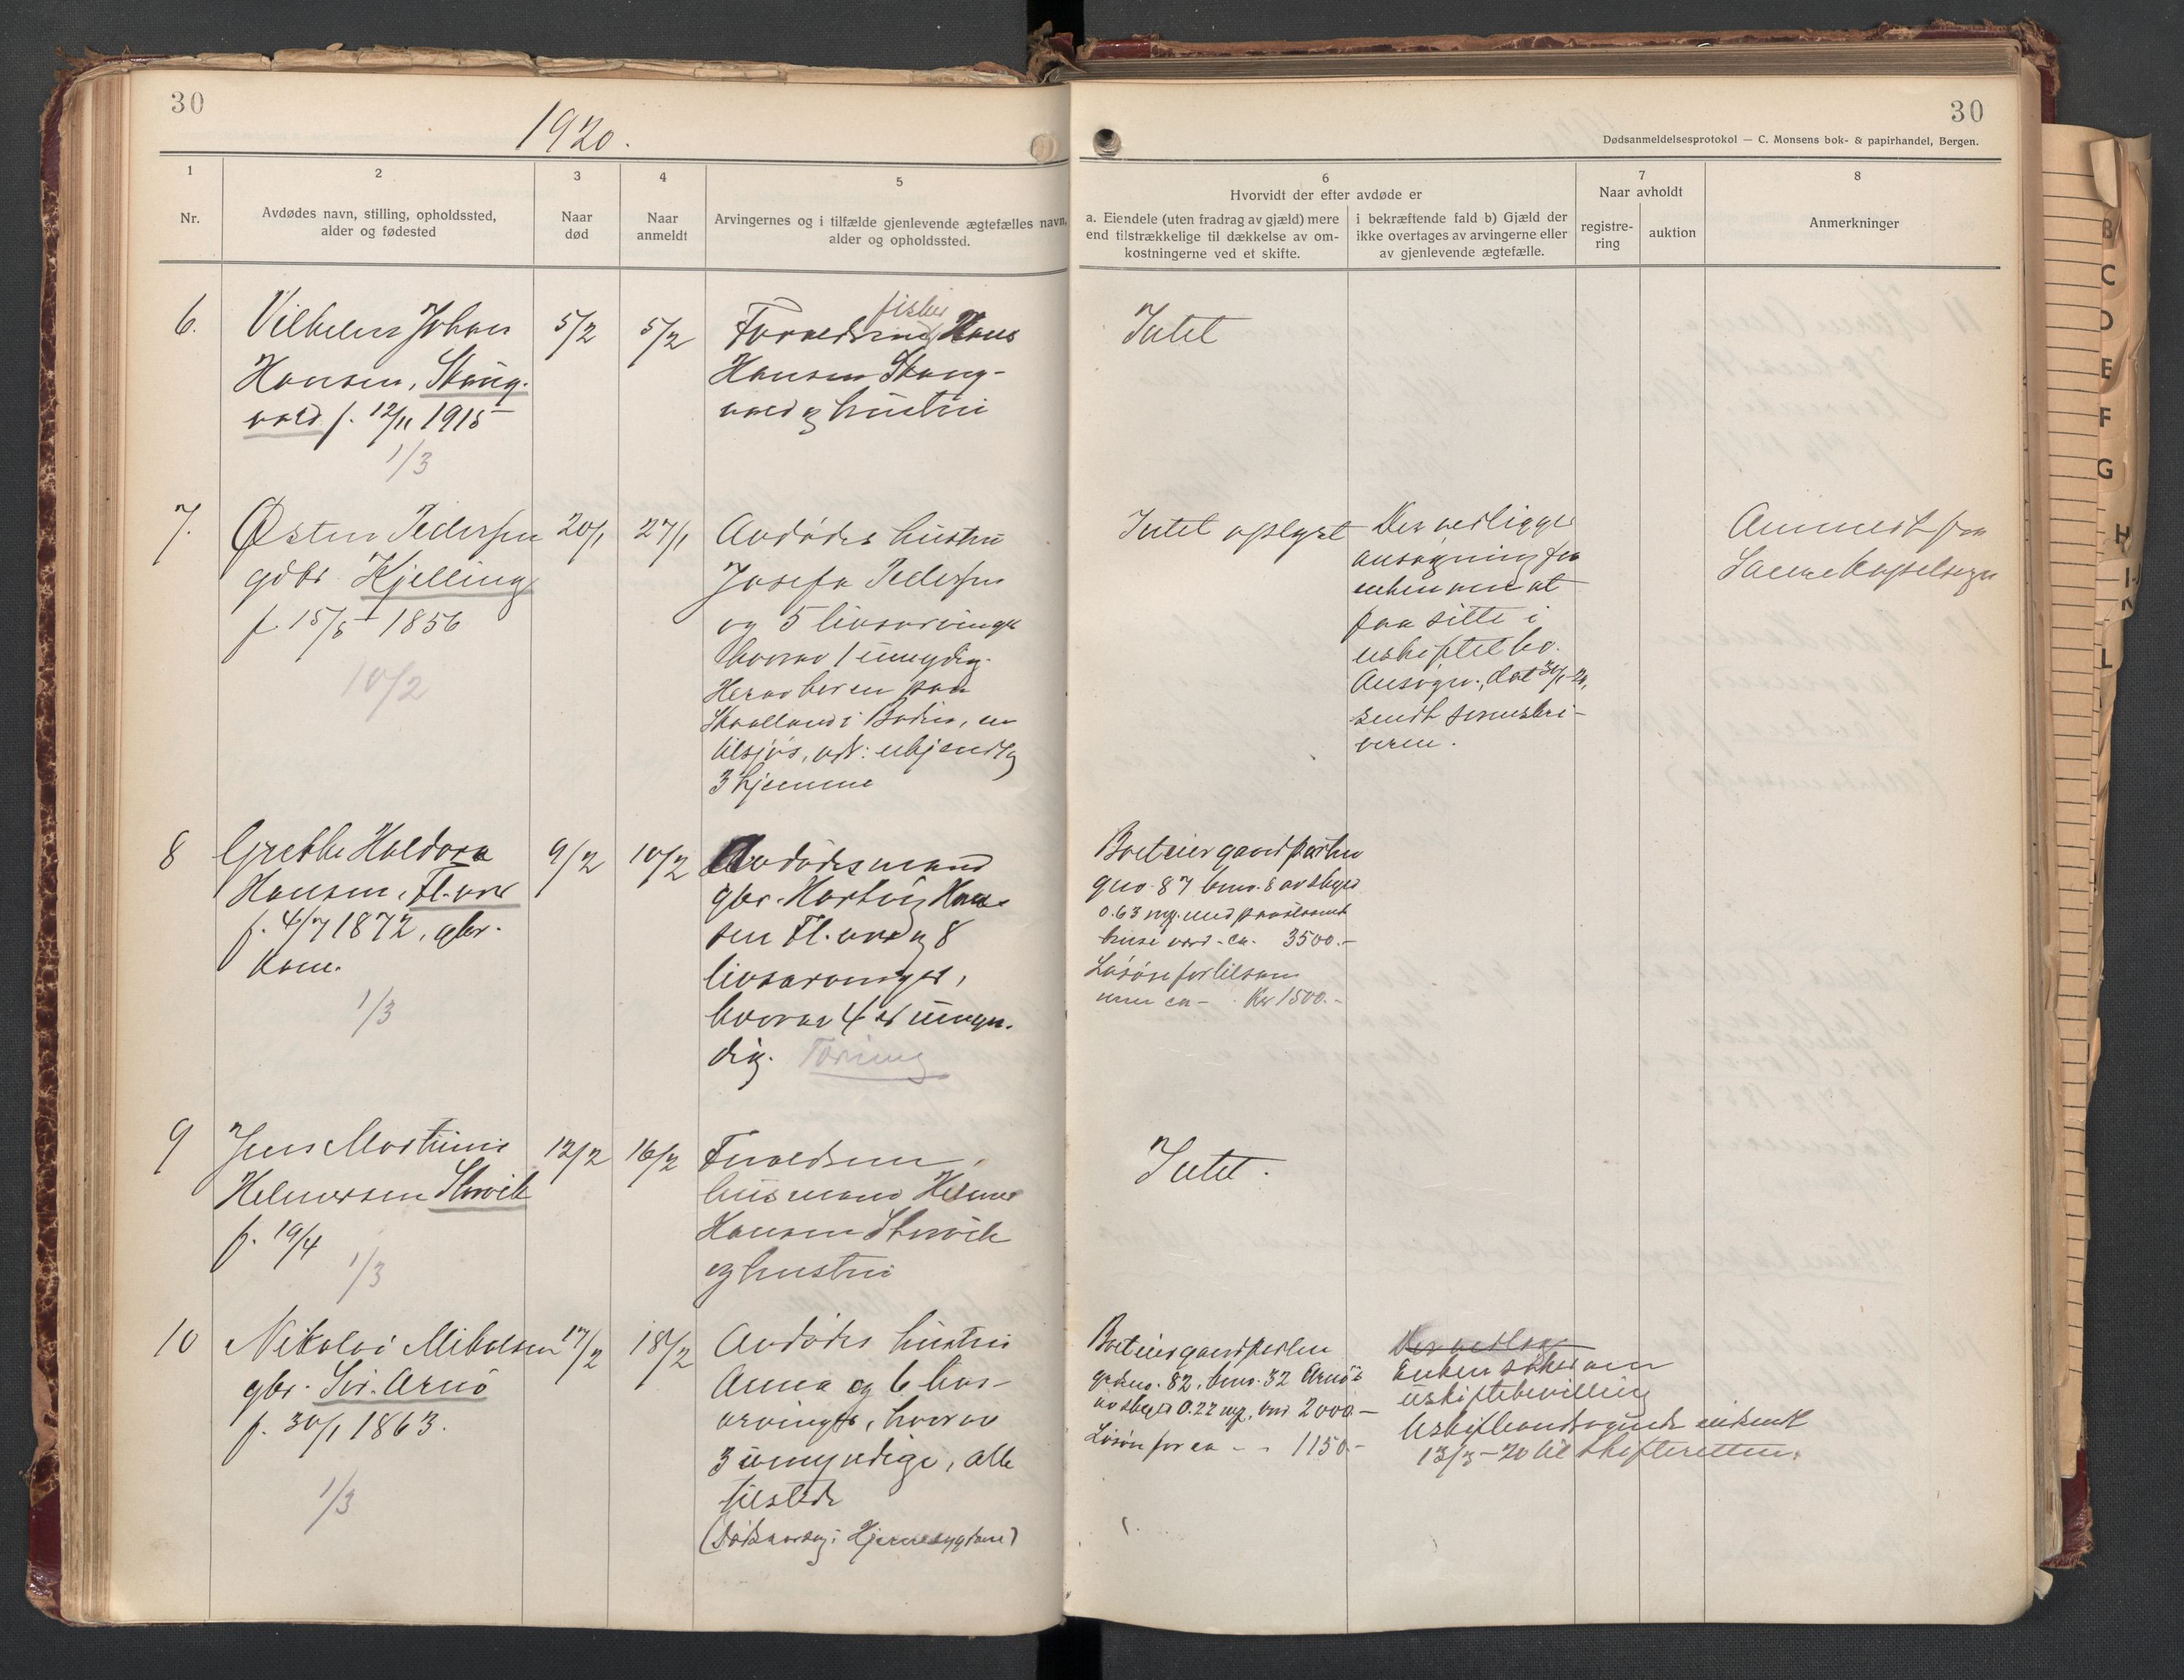 30
1920.
30
Dødsanmeldelsesprotokol — C. Monsens bok- & papirhandel, Bergen.
1
Nr.
2
Avdødes navn, stilling, opholdssted,
alder og fødested
3
Naar
død
4
Naar
anmeldt
5
Arvingernes og i tilfælde gjenlevende ægtefælles navn,
alder og opholdssted.
6
Hvorvidt der efter avdøde er
a. Eiendele (uten fradrag av gjæld) mere
end tilstrækkelige til dækkelse av om-
kostningerne ved et skifte.
i bekræftende fald b) Gjæld der
ikke overtages av arvingerne eller
av gjenlevende ægtefælle.
7
Naar avholdt
registre-
ring
auktion
8
Anmerkninger
6.
Vilhelm Johan
Hansen, Skaug-
vold f. 12/11 1915
1/3
5/2
5/2
fisker
Forældrene Hans
Hansen Skaug-
vold og hustru
Intet
7.
Østen Pedersen
gdbr. Kjelling
f. 15/5 1856
10/2
20/1
27/1
Avdødes hustru
Josefa Pedersen
og 5 livsarvinger
hvorav 1 umyndig.
Herav bor en paa
i Bodin, en
tilsjøs, adr: ukjendt og
3 hjemme
Intet oplyst
Der vedligger
ansøgning fra
enken om at
faa sitte i
uskiftet bo.
Ansøgn. dat 30/1-20,
sendt sorenskri-
veren.
Anmeldt fra
8
Grethe Haldora
Hansen, Fl. vær
f. 4/7 1872, gbr.
kone.
1/3
9/2
10/2
Avdødes mand
gbr. Hartvig Han-
sen Fl. vær og 8
livsarvinger,
hvorav 4 er umyn-
dig.
Boet eier gaardparten
gno. 87 bno. 8 av skyld
0.63 mrk. med paastaaende
huse værd ca. 3500.-
Løsøre for tilsam
men ca - Kr 1500.-
9
Jens Martinus
Helmersen Storvik
f. 19/4
1/3
12/2
16/2
Forældrene,
husmand Helmer
Hansen Storvik
og hustru
Intet.
10
Nikolai Mikalsen
gbr. Sør. Arnø
f. 30/1 1863.
1/3
17/2
18/2
Avdødes hustru
Anna og 6 livs-
arvinger, hvorav
3 umyndige, alle
tilstede
(Dødsaarsag: Hjernesygdom)
Boet eier gaardparten
gaardsno. 82, bno. 32 Arnø
av skyld 0.22 mrk, værd 2000.-
Løsøre for ca - - 1150.-
Der vedlag
Enken søker om
uskiftebevilling
Uskifteandragende indsendt
13/3-20 til skifteretten.
B
C
D
E
F
G
H
I-
K
L